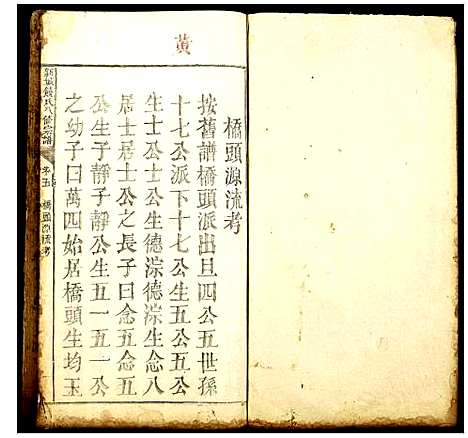 黄
橋頭源流考
按舊譜橋頭派出旦四公五世孫
十七公派下十七公生五公五公
生士公士公生德淙德淙生念八
居士居士公之長子曰念五念五
公生于靜子靜公生五一五一公
之幼子曰萬四始居橋頭生均玉
新城饒氏八修宗譜
卷五
橋頭源流考